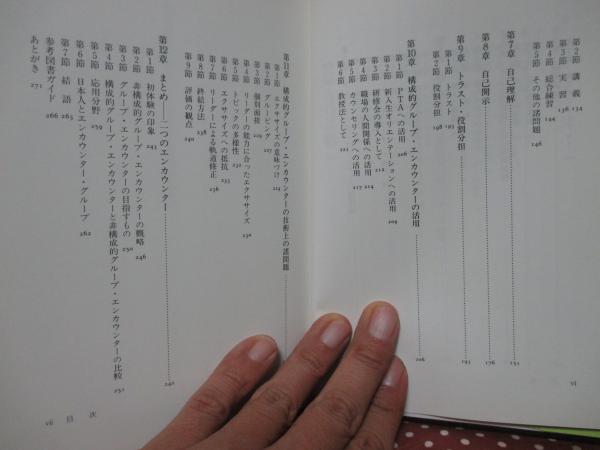 第2節 講義 134
第3節 実習 136
第4節 総合練習 144
第5節 その他の諸問題 146
第7章 自己理解 151
第8章 自己開示 176
第9章 トラスト・役割分担 193
第1節 トラスト 193
第2節 役割分担 198
第10章 構成的グループ・エンカウンターの活用 206
第1節 PTAへの活用 206
第2節 新入生オリエンテーションへの活用 209
第3節 研修会の導入として 212
第4節 職場の人間関係への活用 214
第5節 カウンセリングへの活用 217
第6節 教授法として 221
vi
第11章 構成的グループ・エンカウンターの技術上の諸問題
第1節 エクササイズの意味づけ 224
第2節 グルーピング
第3節 個別面接 229
第4節 リーダーの能力に合ったエクササイズ 230
第5節 トピックの多様性 232
第6節 エクササイズへの抵抗
第7節 リーダーによる軌道修正
第8節 終結方法 238
第9節 評価の観点 240
第12章 まとめ——二つのエンカウンター 242
第1節 初体験の印象 243
第2節 非構成的グループ・エンカウンターの概略 246
第3節 グループ・エンカウンターの目指すもの 250
第4節 構成的グループ・エンカウンターと非構成的グループ・エンカウンターの比較 252
第5節 応用分野 259
第6節 日本人とエンカウンター・グループ 262
第7節 結語 265
参考図書ガイド 266
あとがき 271
vii 目次